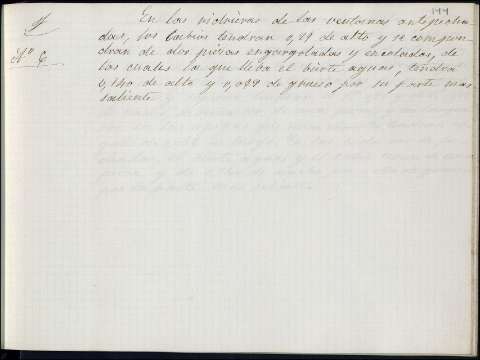 144
En las vidrieras de las ventanas antepecha-
das, los cabios tendran 0,29 de alto y se compon-
dran de dos piezas engargoladas y encoladas, de
Nº 6
las cuales la que lleva el vierte aguas, tendrá
0,140 de alto y 0,088 de grueso por su parte mas
saliente